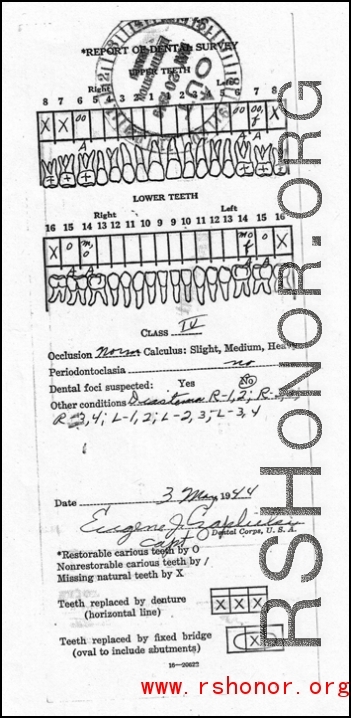 *REPORT OF DENTAL SURVEY
UPPER TEETH
Right Left
8 7 6 5 4 3 2 1 1 2 3 4 5 6 7 8
X X oo oo oo, f X
A A A
LOWER TEETH
Right Left
16 15 14 13 12 11 10 9 9 10 11 12 13 14 15 16
X o m, o mo f o X
A A A A
CLASS IV
Occlusion Norm Calculus: Slight, Medium, Heavy
Periodontoclasia no
Dental foci suspected: Yes No
Other conditions Diastema R-1,2; R-
R-3,4; L-1,2; L-2,3; L-3,4
Date 3 May 1944
Eugene J.
Capt Dental Corps, U. S. A.
*Restorable carious teeth by O
Nonrestorable carious teeth by /
Missing natural teeth by X
Teeth replaced by denture X X X
(horizontal line)
Teeth replaced by fixed bridge X
(oval to include abutments)
16—20622
RSHONOR.ORG
www.rshonor.org